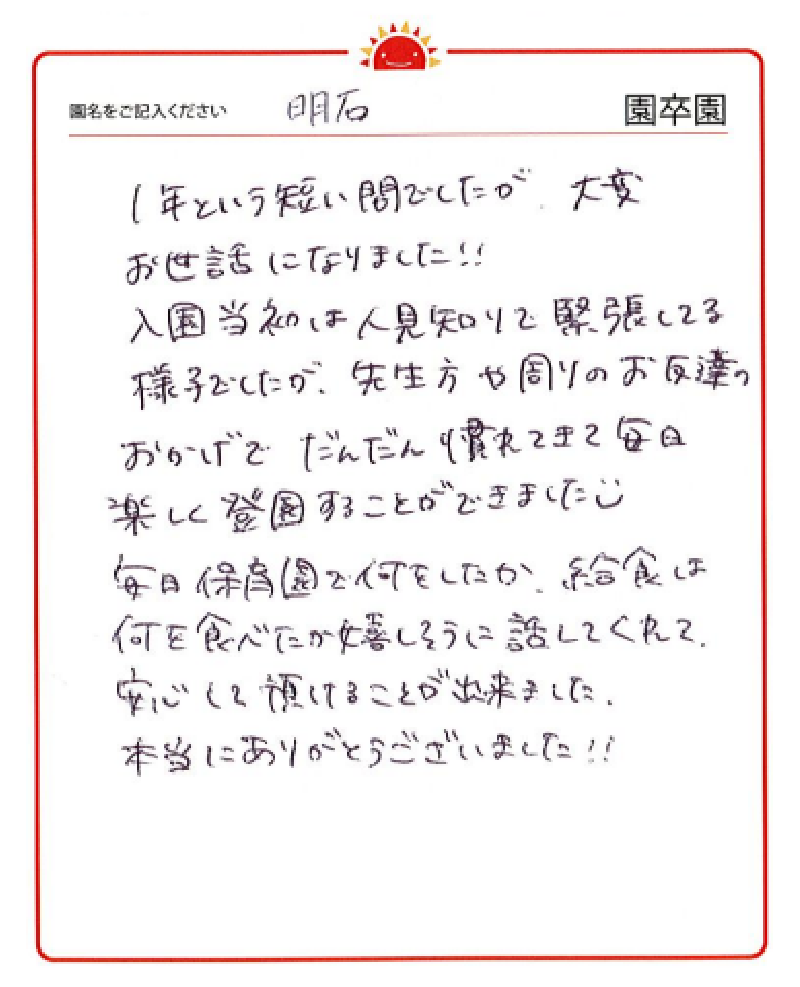 園名をご記入ください 明石 園卒園
1年という短い間でしたが、大変
お世話になりました!!
入園当初は人見知りで緊張してる
様子でしたが、先生方や周りのお友達の
おかげで だんだん慣れてきて毎日
楽しく登園することができました
毎日保育園で何をしたか、給食は
何を食べたか嬉しそうに話してくれて、
安心して預けることが出来ました。
本当にありがとうございました!!